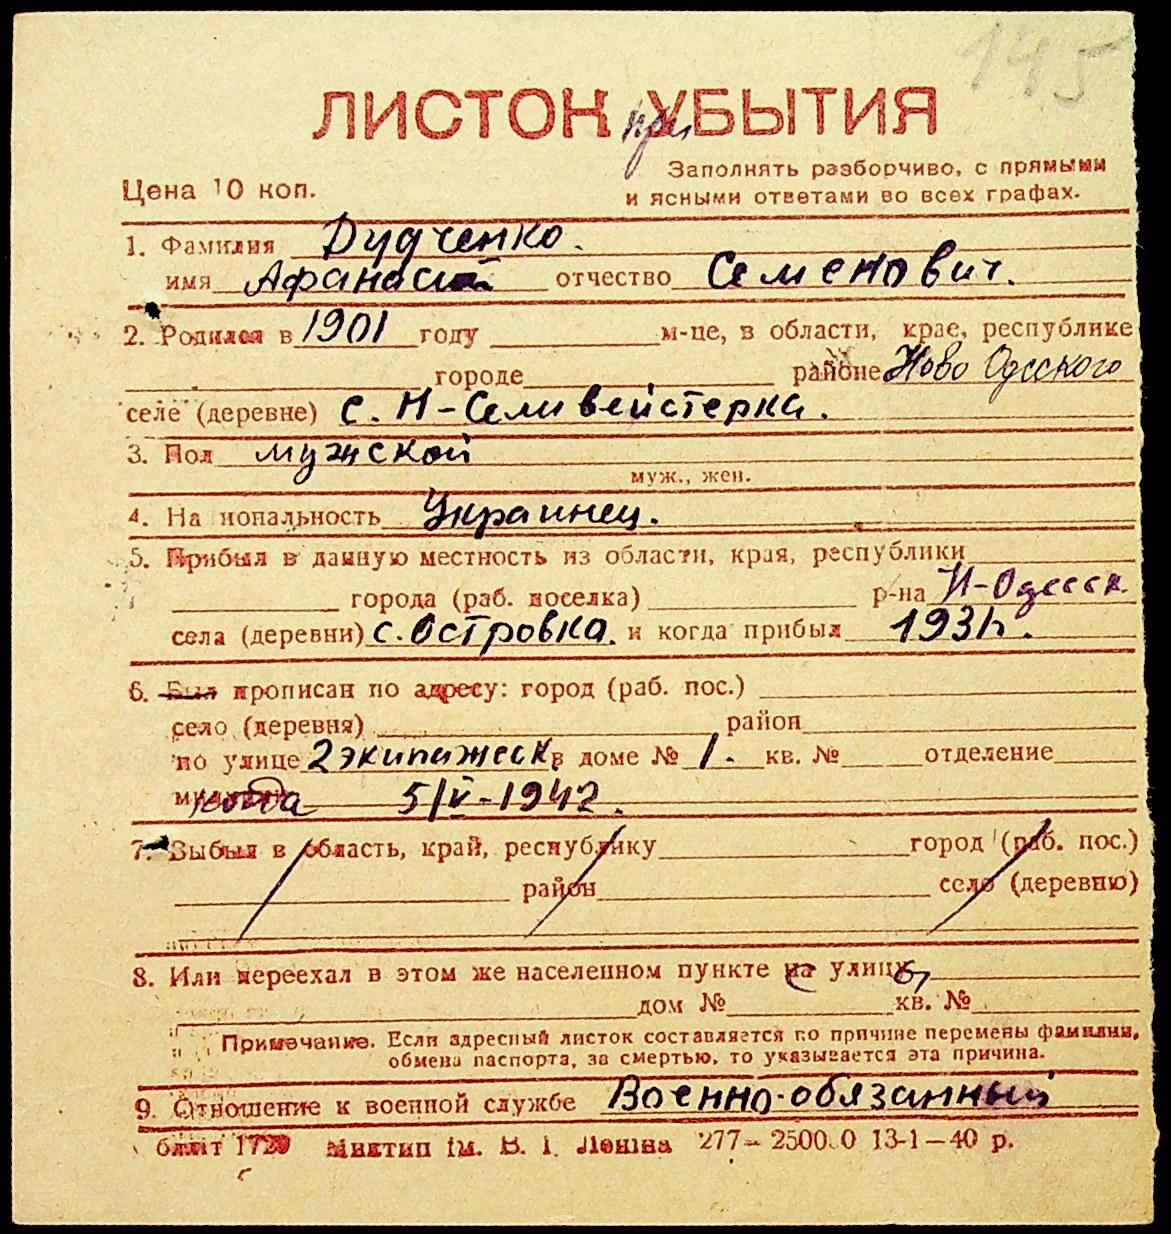 145
ЛИСТОК при УБЫТИЯ
Цена 10 коп.
Заполнять разборчиво, с прямыми
и ясными ответами во всех графах.
1. Фамилия Дудченко.
имя Афанасий отчество Семенович.
2. Родился в 1901 году м-це, в области, крае, республике
городе районе Ново Одесского
селе (деревне) с. Н-Селивейстерка.
3. Пол мужской
муж., жен.
4. Национальность Украинец.
5. Прибыл в данную местность из области, края, республики
города (раб. поселка) р-на Н-Одесск.
села (деревни) с. Островка. и когда прибыл 1931г.
6. Был прописан по адресу: город (раб. пос.)
село (деревня) район
по улице 2 экипажеск. в доме № 1. кв. № отделение
когда 5/V-1942.
7. Выбыл в область, край, республику город (раб. пос.)
район село (деревню)
8. Или переехал в этом же населенном пункте на улицу
дом № кв. №
Примечание. Если адресный листок составляется по причине перемены фамилии,
обмена паспорта, за смертью, то указывается эта причина.
9. Отношение к военной службе Военно-обязанный
1729 Миктип Ім. В. І. Леніна 277-250000 13-1-40 р.